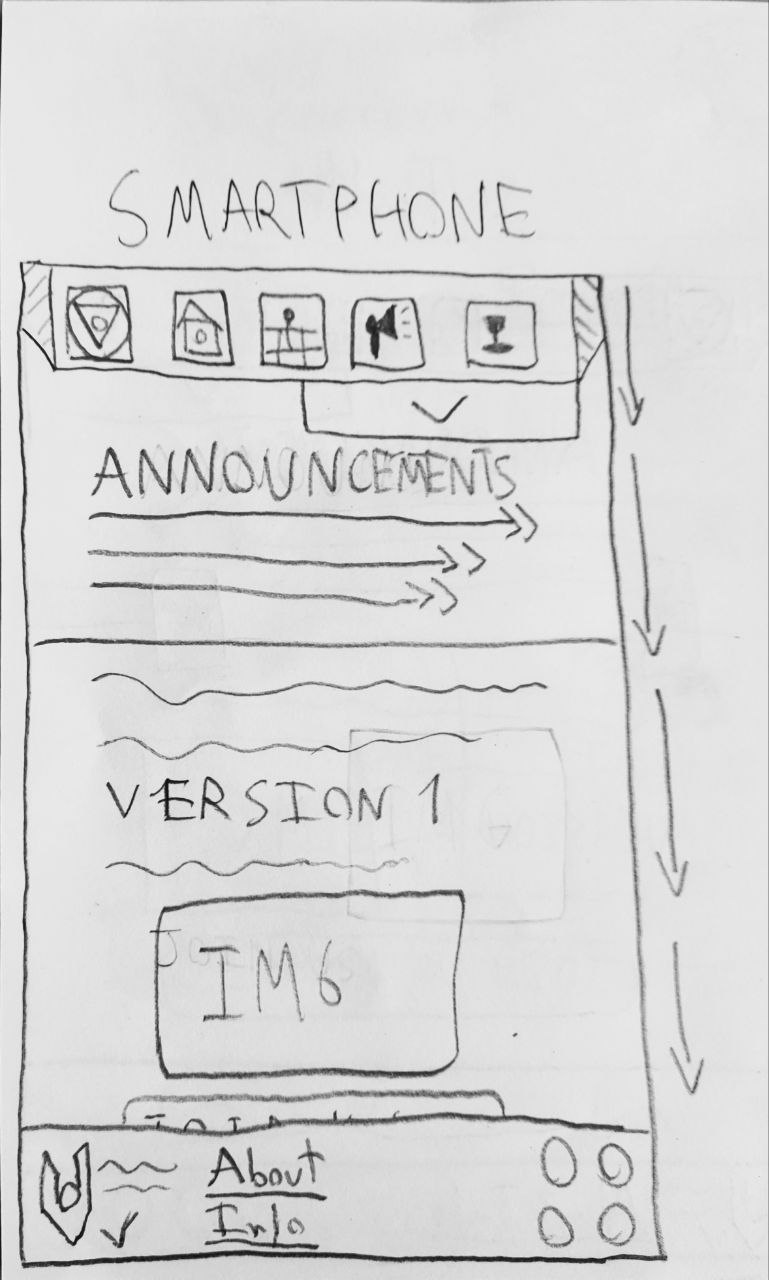 SMARTPHONE
ANNOUNCEMENTS
VERSION 1
IMG
About
Info